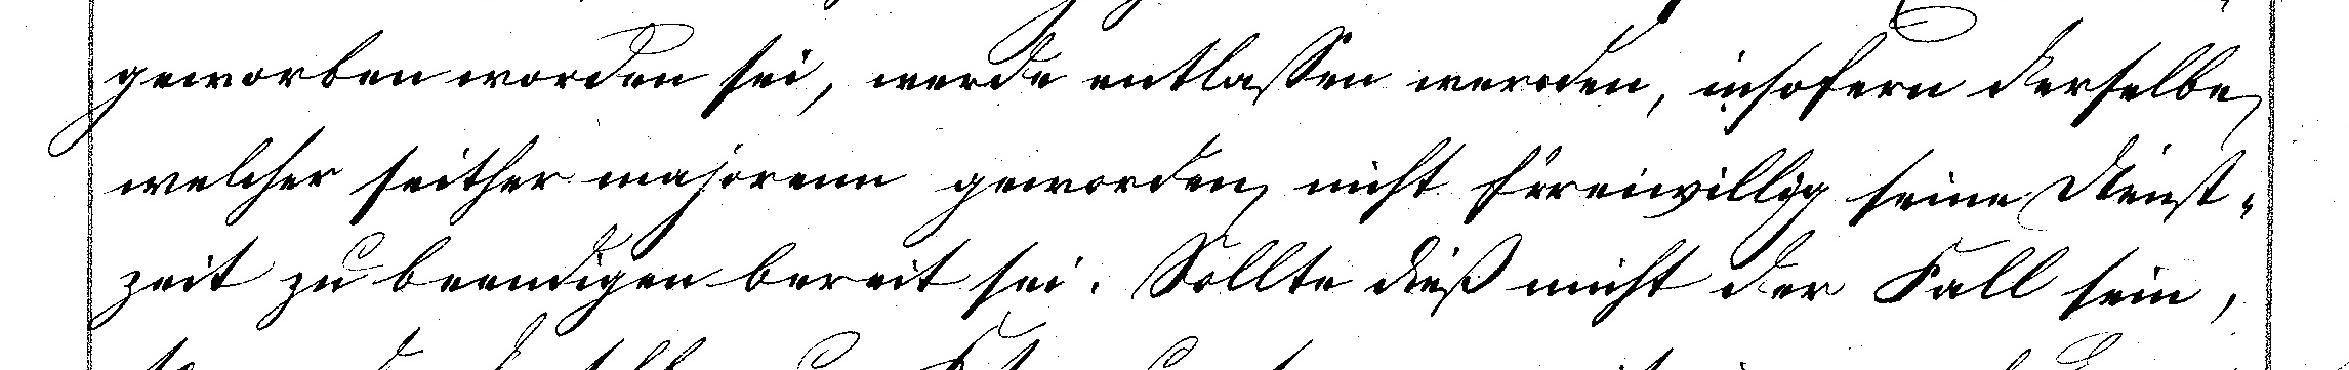 geworben worden sei, werde entlassen werden, insofern derselbe,
welcher seither majorenn geworden, nicht freiwillig seine Dienst-
zeit zu beendigen bereit sei. Sollte dieß nicht der Fall sein,